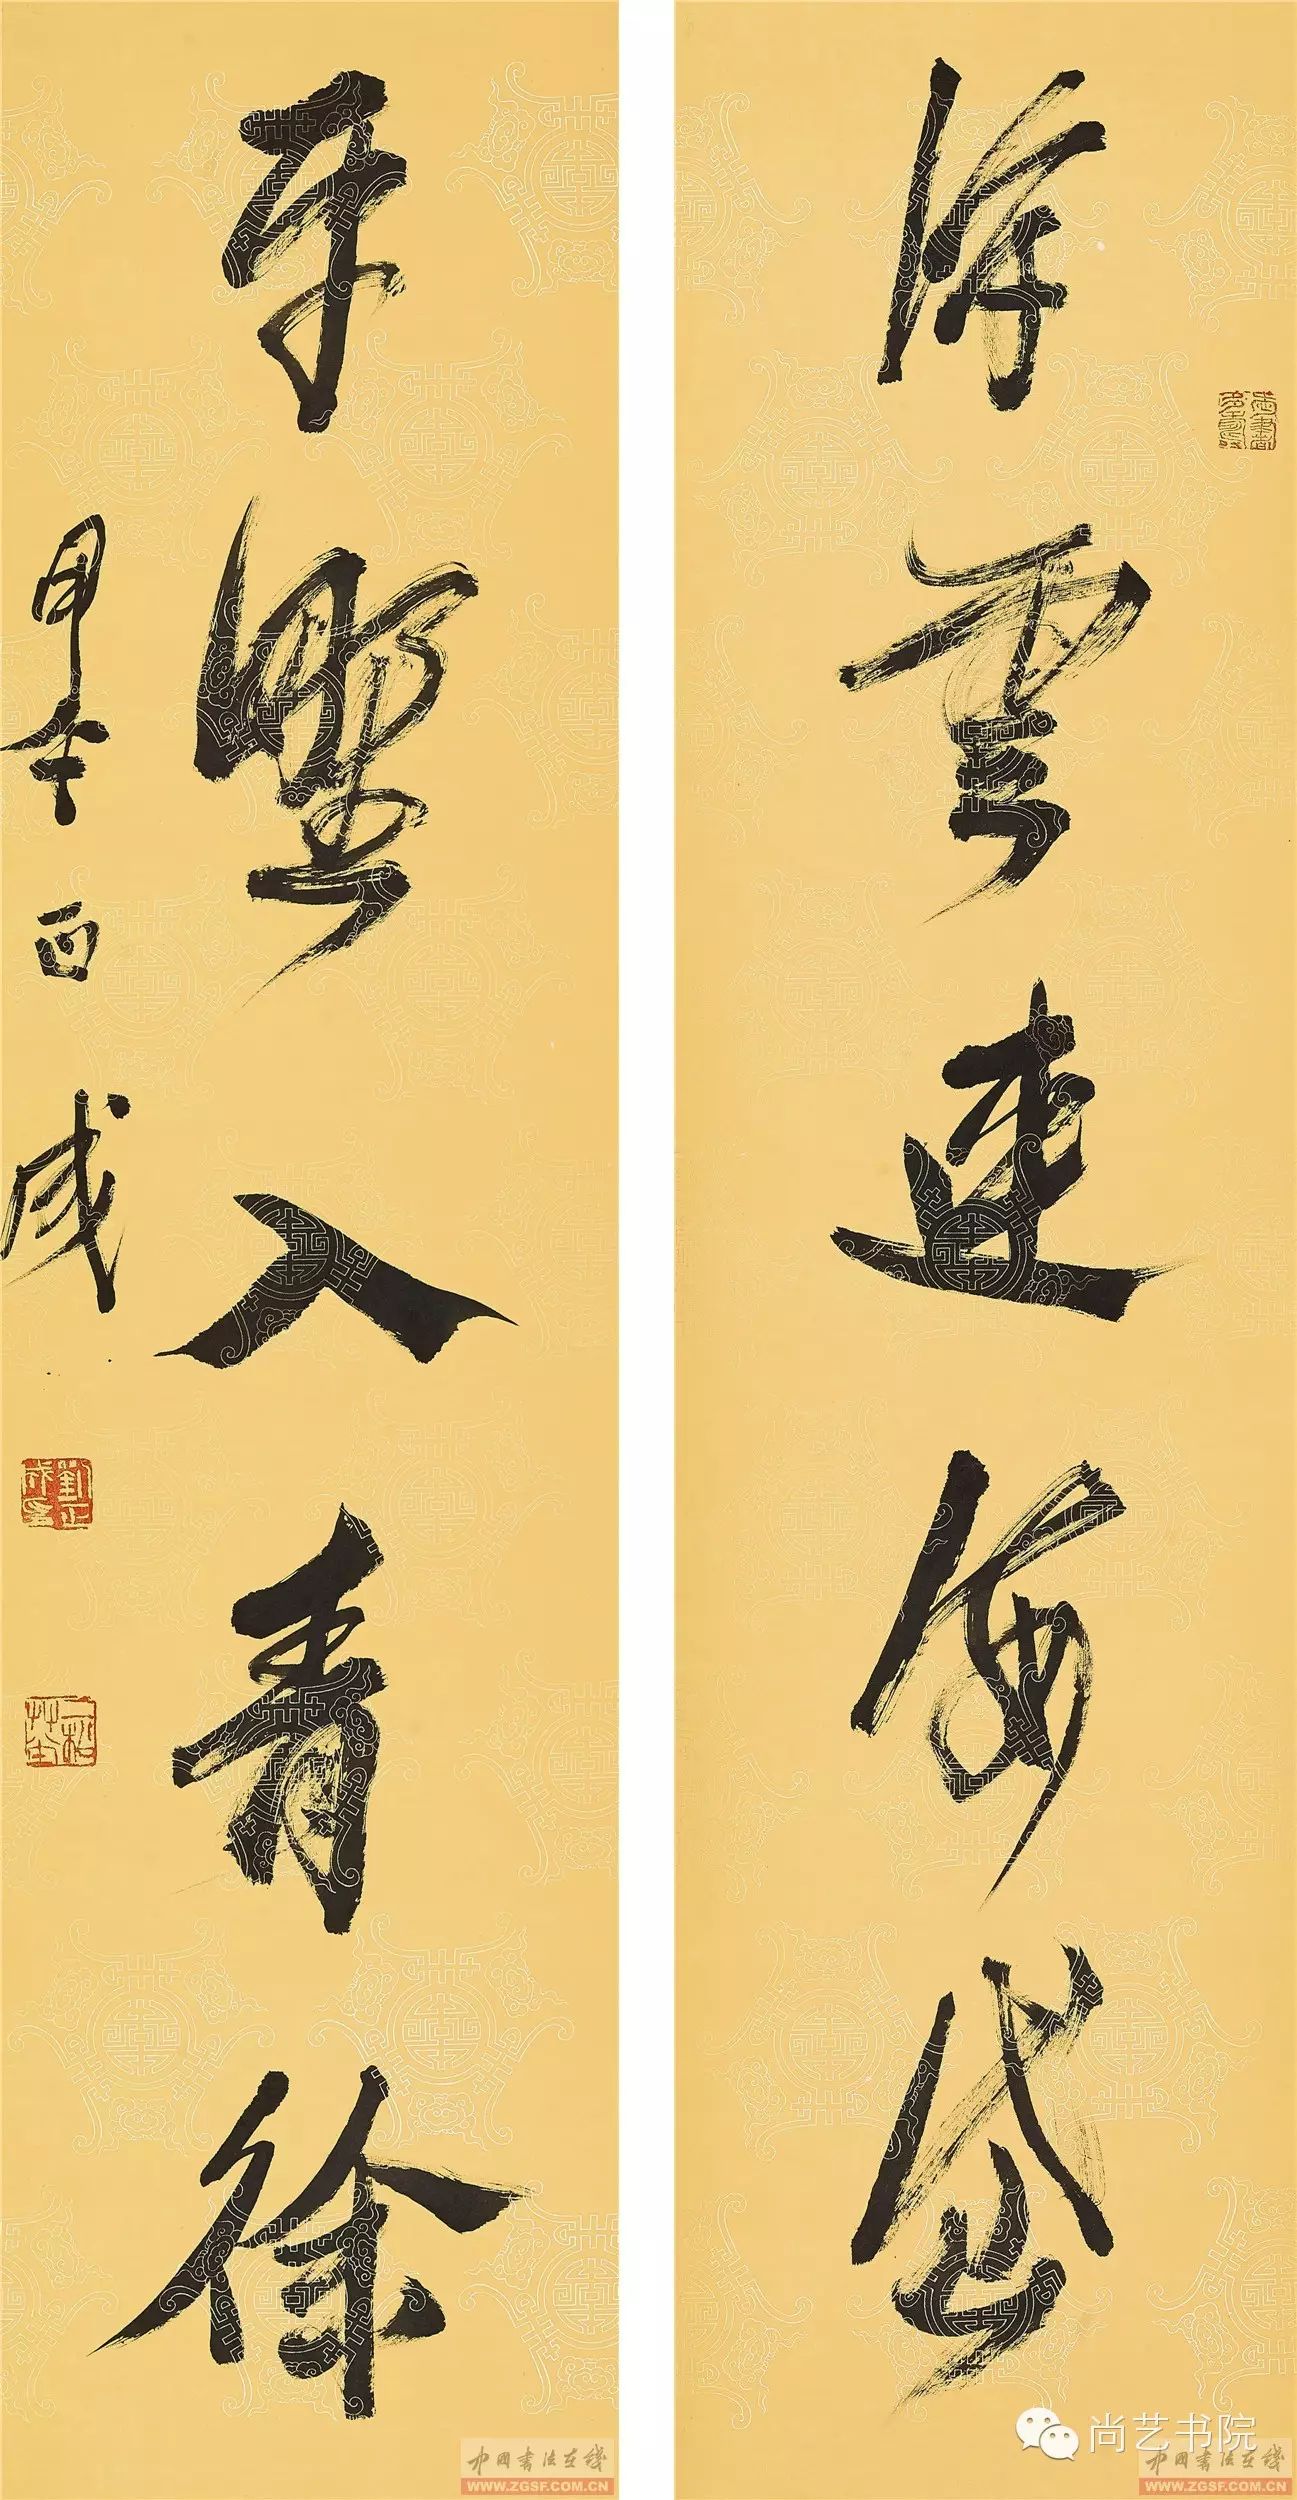 浮雲連海岱
平野入青徐
甲午 正成
劉正成璽
尚艺书院
中国书法在线
WWW.ZGSF.COM.CN
中国书法在线
WWW.ZGSF.COM.CN